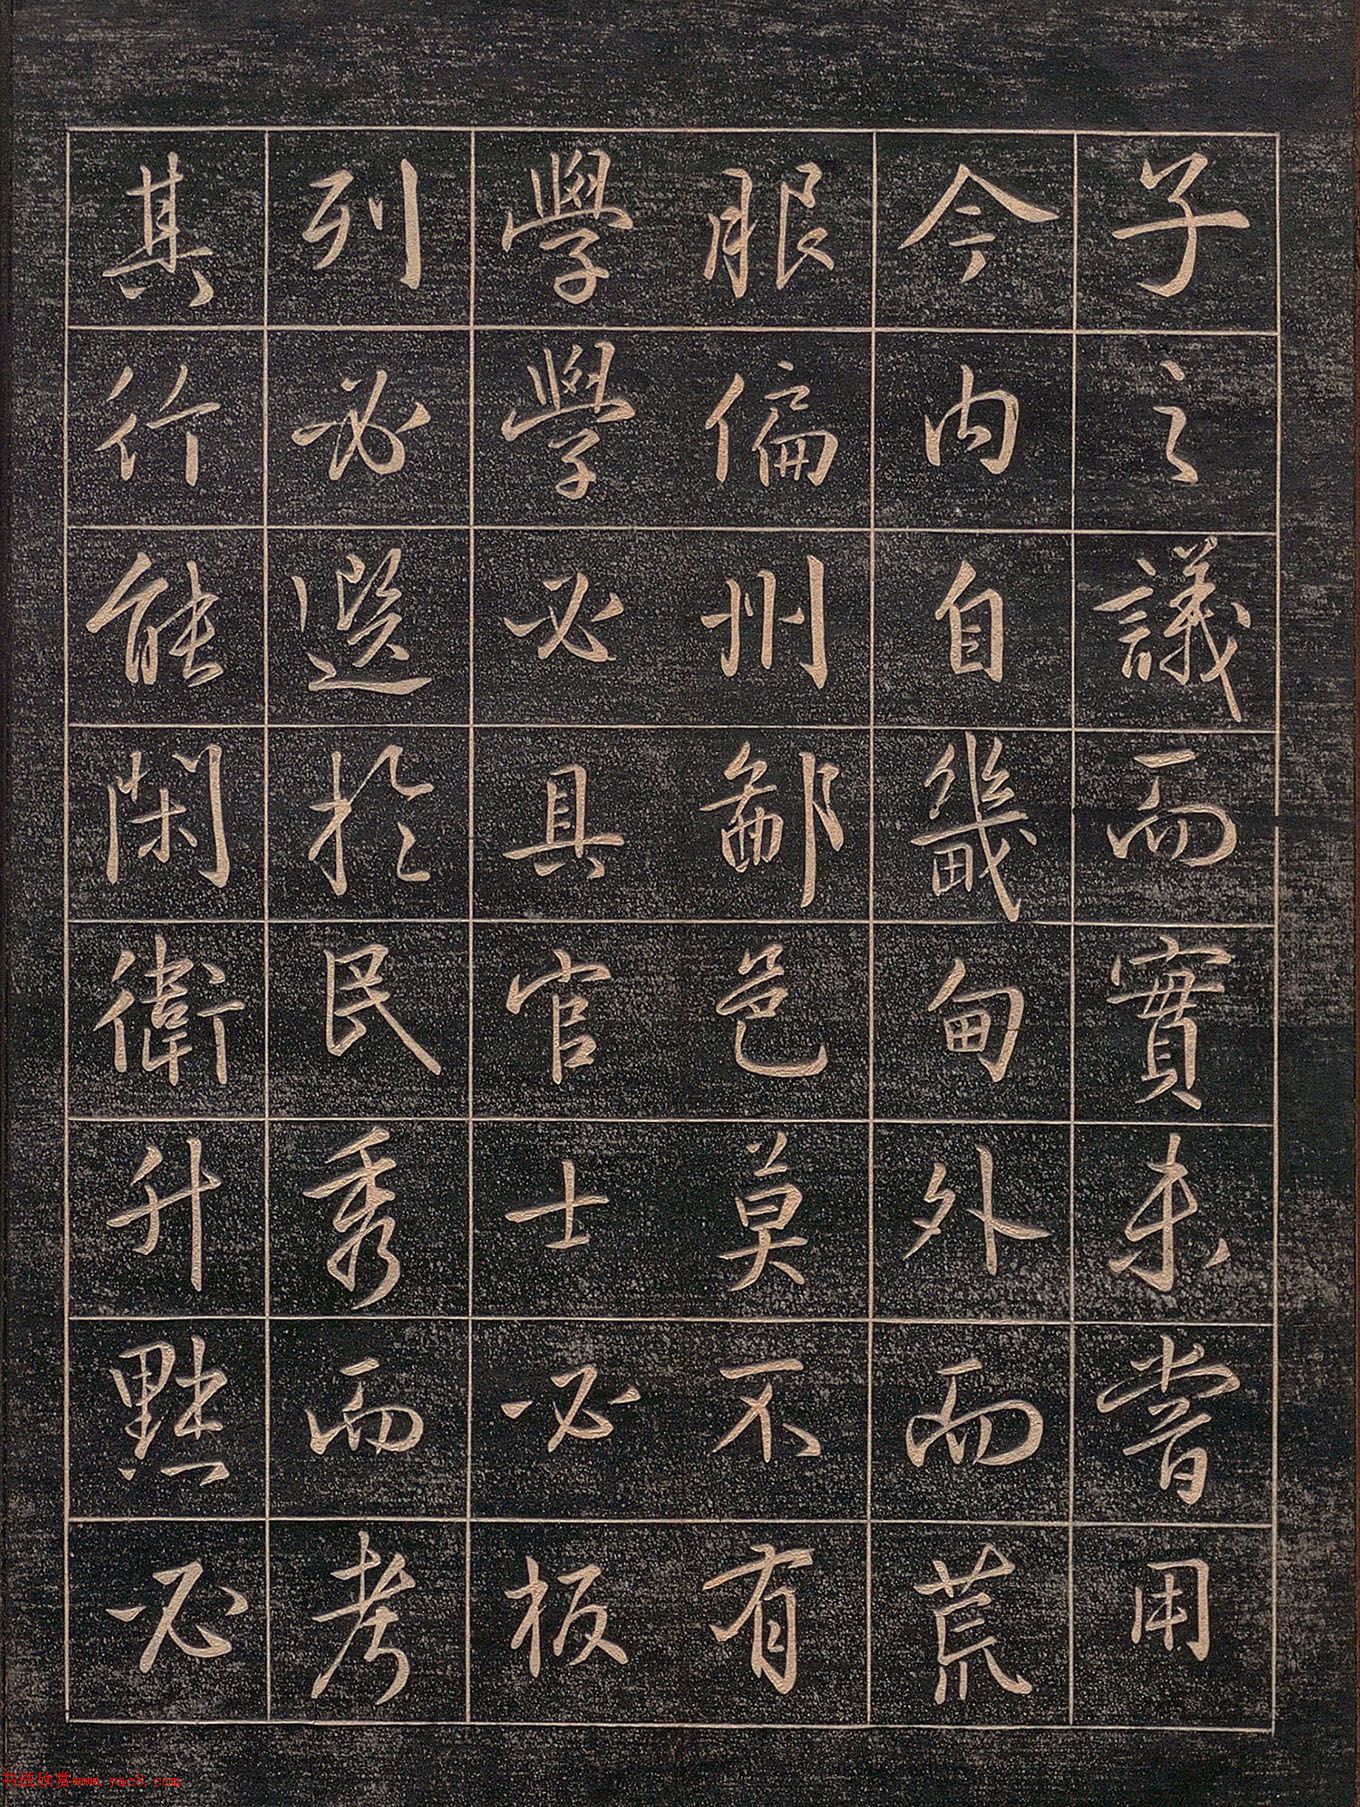 子之議而實未嘗用
今内自畿甸外而荒
服偏州鄙邑莫不有
學學必具官士必板
列必選於民秀而考
其行能閑衛升黜必
www.yac8.com